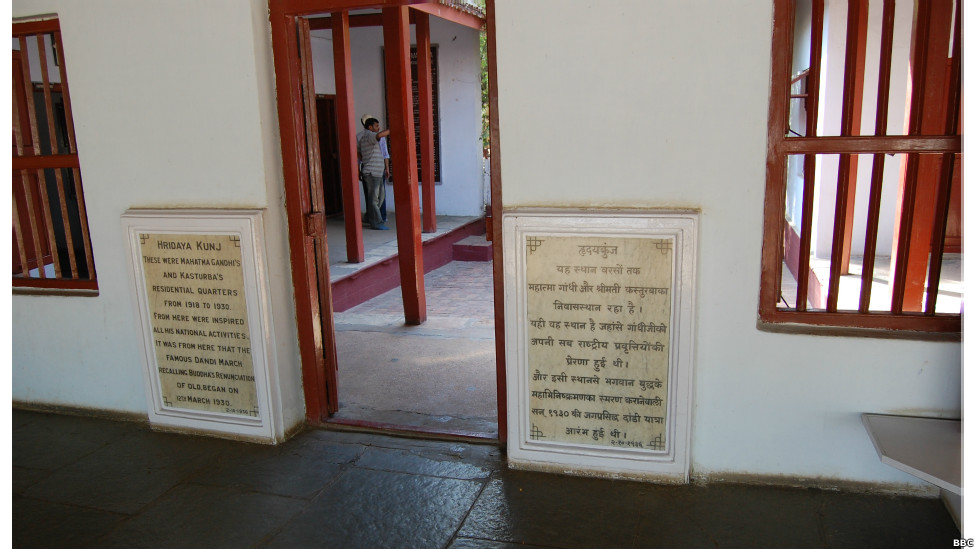 HRIDAYA KUNJ
THESE WERE MAHATMA GANDHI'S
AND KASTURBA'S
RESIDENTIAL QUARTERS
FROM 1918 TO 1930.
FROM HERE WERE INSPIRED
ALL HIS NATIONAL ACTIVITIES.
IT WAS FROM HERE THAT THE
FAMOUS DANDI MARCH
RECALLING BUDDHA'S RENUNCIATION
OF OLD, BEGAN ON
12TH MARCH 1930.
हृदयकुंज
यह स्थान बरसों तक
महात्मा गांधी और श्रीमती कस्तुरबाका
निवासस्थान रहा है।
यही वह स्थान है जहांसे गांधीजीको
अपनी सब राष्ट्रीय प्रवृत्तियोंकी
प्रेरणा हुई थी।
और इसी स्थानसे भगवान बुद्धके
महाभिनिष्क्रमणका स्मरण करानेवाली
सन् १९३० की जगप्रसिद्ध दांडी यात्रा
आरंभ हुई थी।
BBG